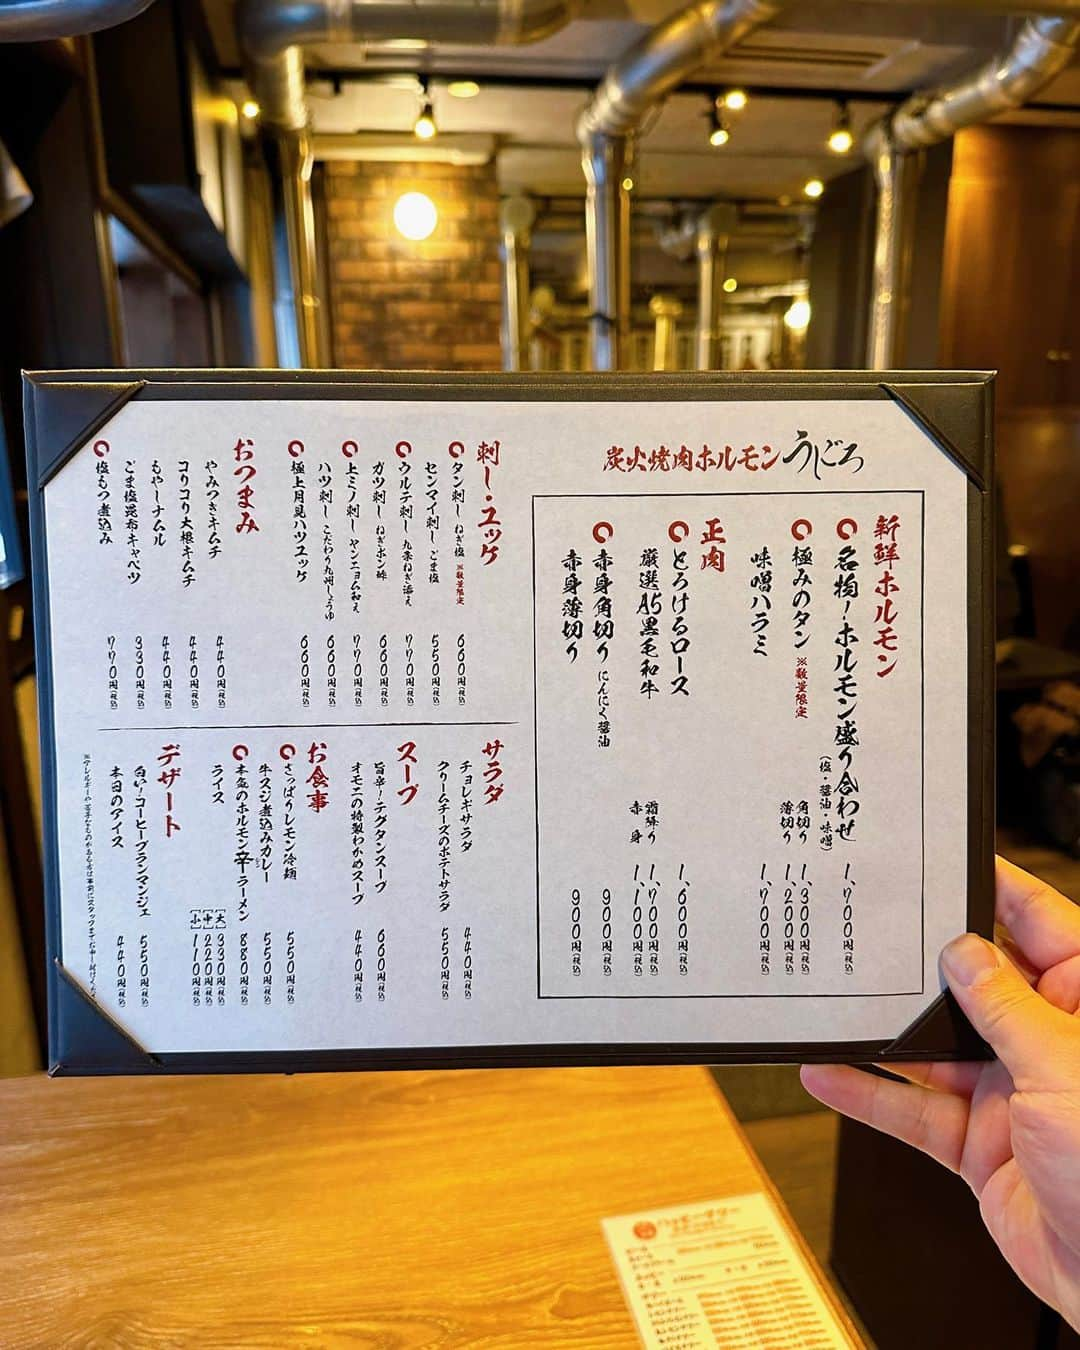 炭火焼肉ホルモン うじろ
新鮮ホルモン
名物！ホルモン盛り合わせ（塩・醤油・味噌） 1,700円（税込）
極みのタン ※数量限定
角切り 1,300円（税込）
薄切り 1,200円（税込）
味噌ハラミ 1,700円（税込）
正肉
とろけるロース 1,600円（税込）
厳選A5黒毛和牛
霜降り 1,700円（税込）
赤身 1,100円（税込）
赤身角切り にんにく醤油 900円（税込）
赤身薄切り 900円（税込）
刺し・ユッケ
タン刺し ねぎ塩 ※数量限定 660円（税込）
センマイ刺し ごま塩 550円（税込）
ウルテ刺し 九条ねぎ添え 770円（税込）
ガツ刺し ねぎポン酢 660円（税込）
上ミノ刺し ヤンニョム和え 770円（税込）
ハツ刺し こだわり九州しょうゆ 660円（税込）
極上月見ハツユッケ 660円（税込）
おつまみ
やみつきキムチ 440円（税込）
コリコリ大根キムチ 440円（税込）
もやしナムル 440円（税込）
ごま塩昆布キャベツ 330円（税込）
塩もつ煮込み 770円（税込）
サラダ
チョレギサラダ 440円（税込）
クリームチーズのポテトサラダ 550円（税込）
スープ
旨辛！テグタンスープ 660円（税込）
オモニの特製わかめスープ 440円（税込）
お食事
さっぱりレモン冷麺 550円（税込）
牛スジ煮込みカレー 550円（税込）
本気のホルモン辛ラーメン 880円（税込）
ライス
［大］330円（税込）
［中］220円（税込）
［小］110円（税込）
デザート
白い！コーヒーブランマンジェ 550円（税込）
本日のアイス 440円（税込）
※アレルギーや苦手なものがある方は事前にスタッフまでお申し付けくだ